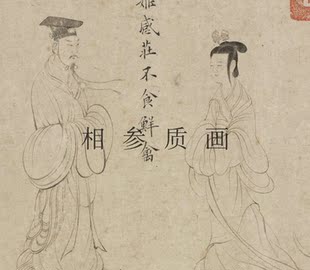 姬感莊不食鮮禽
相参质画